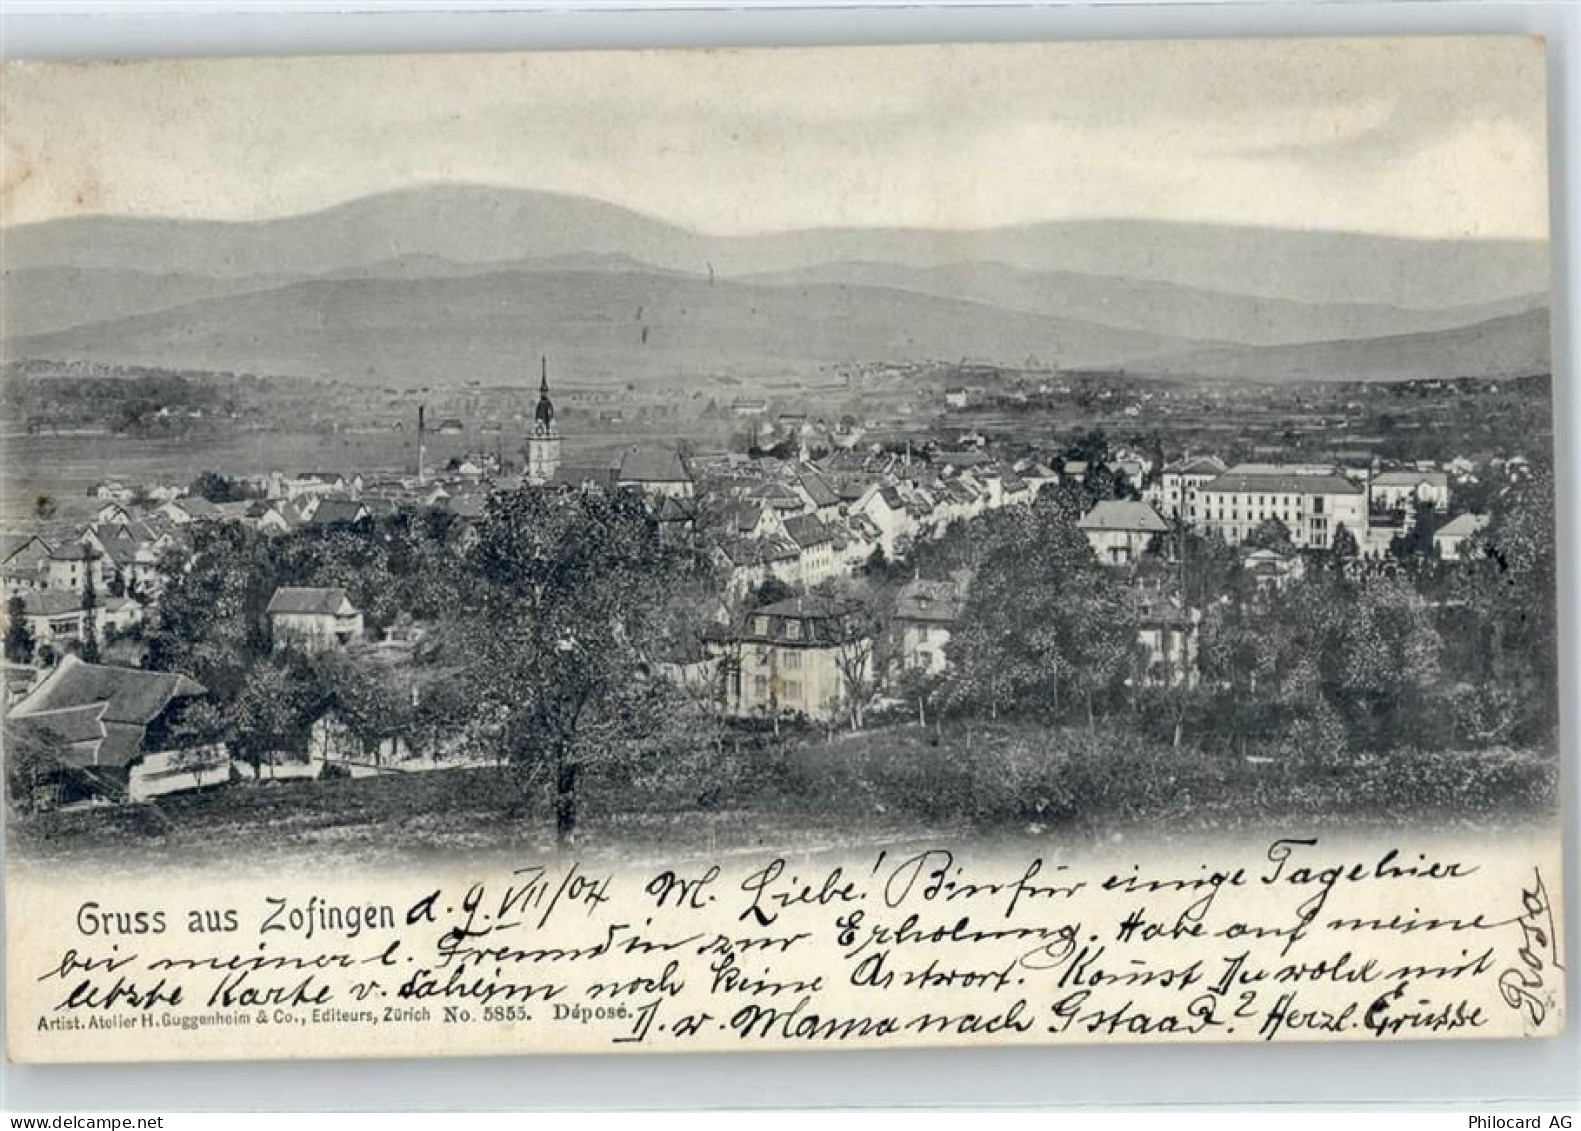 Gruss aus Zofingen d. 9. VII/04 M. Liebe! Bin für einige Tage hier
bei meiner l. Freundin zur Erholung. Habe auf meine
letzte Karte v. daheim noch keine Antwort. Komst Du wohl mit
Artist. Atelier H. Guggenheim & Co., Editeurs, Zürich No. 5855. Déposé. D. w. Mama nach Gstaad? Herzl. Grüsse
Rosa
Philocard AG